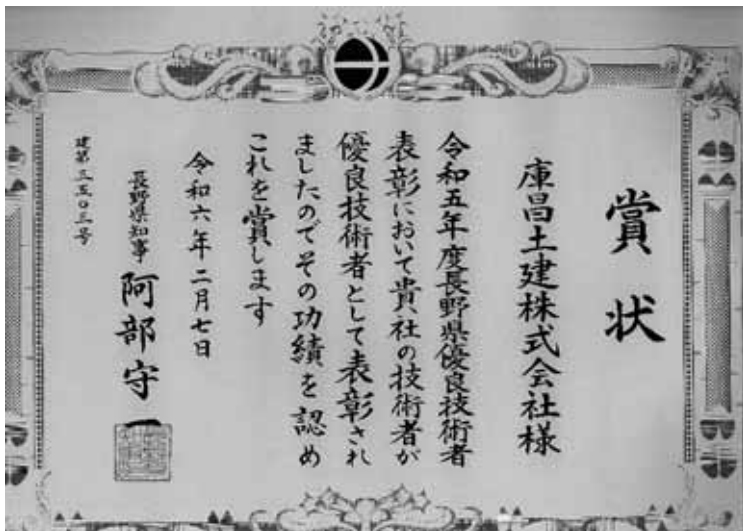 賞状
庫昌土建株式会社様
令和五年度長野県優良技術者
表彰において貴社の技術者が
優良技術者として表彰され
ましたのでその功績を認め
これを賞します
令和六年二月七日
長野県知事 阿部守一
建第三五〇三号